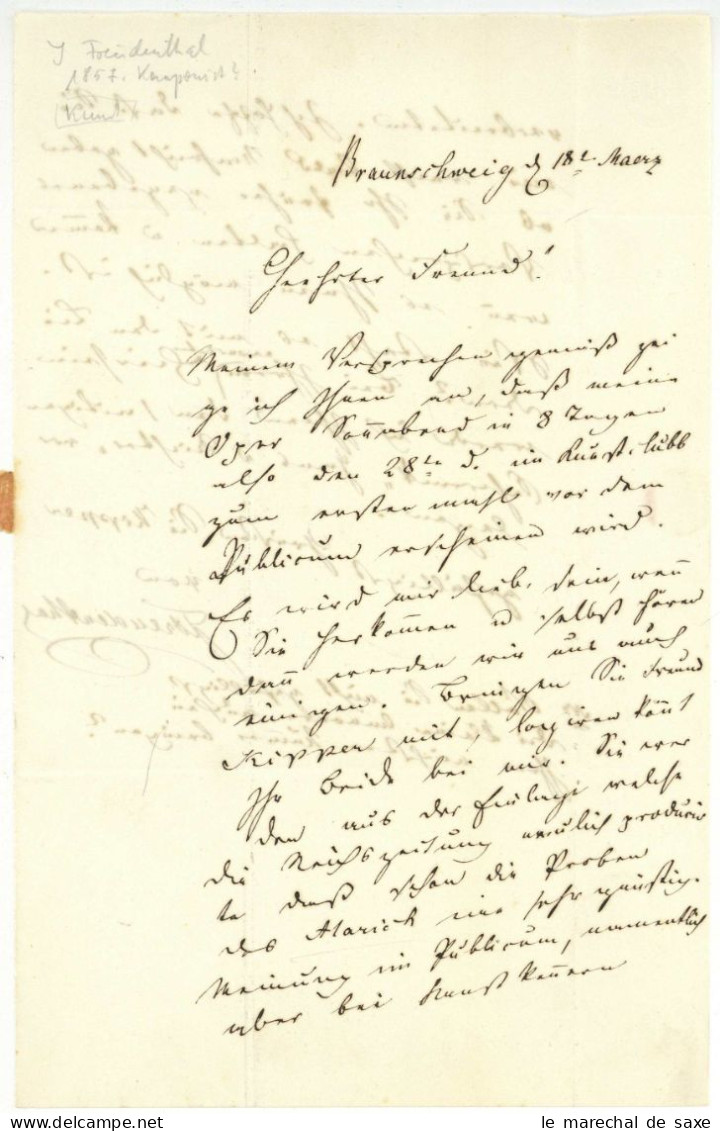 J Freudenthal
1857. Komponist?
Braunschweig d 18t Maerz
Geehrter Freund!
Meinem Versprechen gemäß zei
ge ich Ihnen an, daß meine
Oper Sonnabend in 8 Tagen
also den 28te d. im Kunstclubb
zum ersten mahl vor dem
Publicum erscheinen wird.
Es wird mir lieb sein, wenn
Sie herkommen u selbst hören
dann werden wir uns auch
einigen. Bringen Sie Freund
Kipper mit, logiren könnt
Ihr beide bei mir. Sie wer
den aus der Einlage welche
die Reichszeitung neulich producir
te daß schon die Proben
des Alarich eine sehr günstige
Meinung im Publicum, namentlich
aber bei Kunstkennern
le marechal de saxe